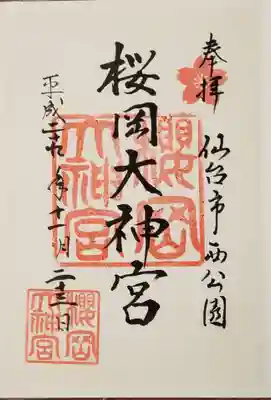 奉拝 仙台市西公園
桜岡大神宮
平成二十九年十一月二十三日
櫻岡大神宮
櫻岡大神宮